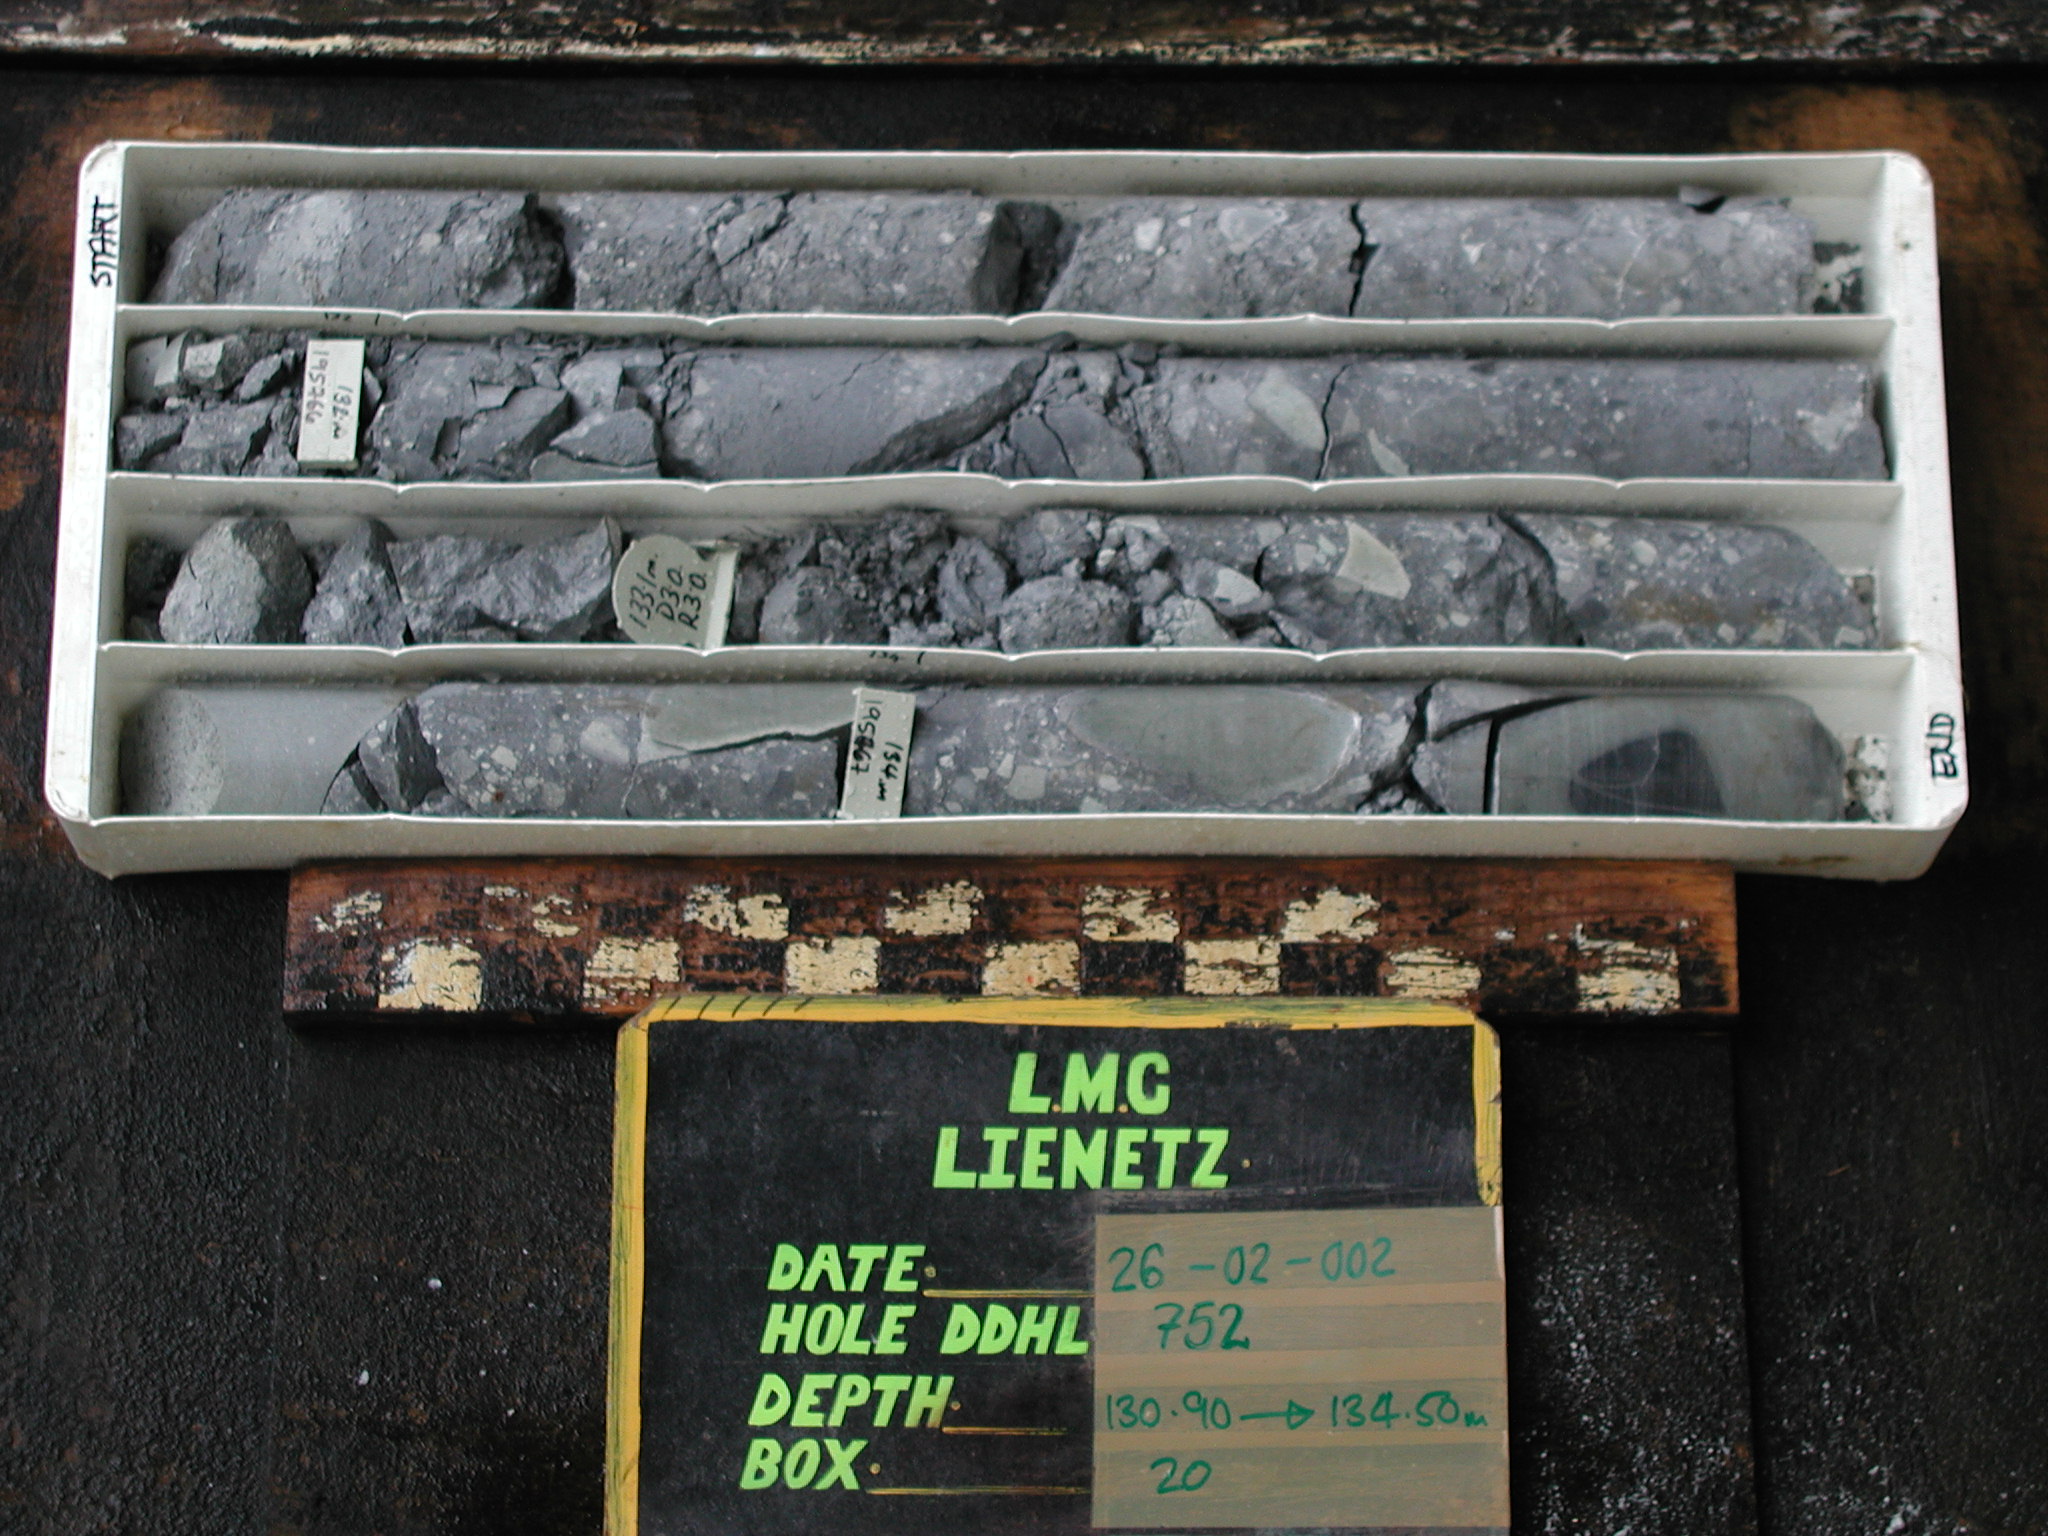 START
132
132m
1957766
133.1m.
D3.0.
R3.0.
134
134m
END
L.M.C
LIENETZ.
DATE. 26-02-002
HOLE DDHL 752
DEPTH. 130.90 → 134.50m
BOX. 20